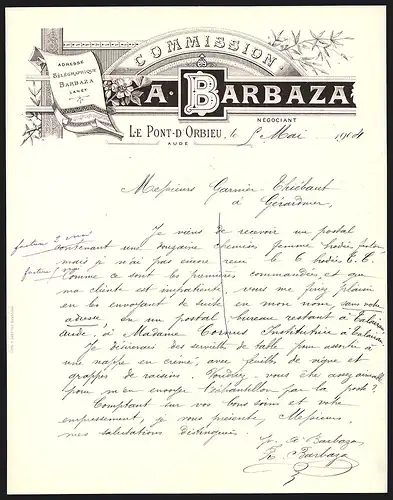 ADRESSE
TÉLÉGRAPHIQUE
BARBAZA
LANET
COMMISSION
A. BARBAZA
NÉGOCIANT
LE PONT-D'ORBIEU, le 5 Mai 1904
AUDE
Messieurs Garnier Thiébaut
à Gérardmer,
Je viens de recevoir un postal
contenant une douzaine chemises femme brodées feston
mais je n'ai pas encore reçu le 6 brodés E. C.
Comme ce sont les premières commandées et que
ma cliente est impatiente, vous me ferez plaisir
en les envoyant de suite en mon nom, sans votre
adresse en un postal bureau restant à Talairan
Aude, à Madame Institutrice à Talairan
Je désirerais des serviettes de table pour assortir à
une nappe en crème, avec feuille de vigne et
grappes de raisins. Voudrez vous être assez aimable
pour m'en envoyer l'échantillon par la poste?
Comptant sur vos bons soins et votre
empressement, je vous présente, Messieurs,
mes salutations distinguées.
A. Barbaza
Barbaza